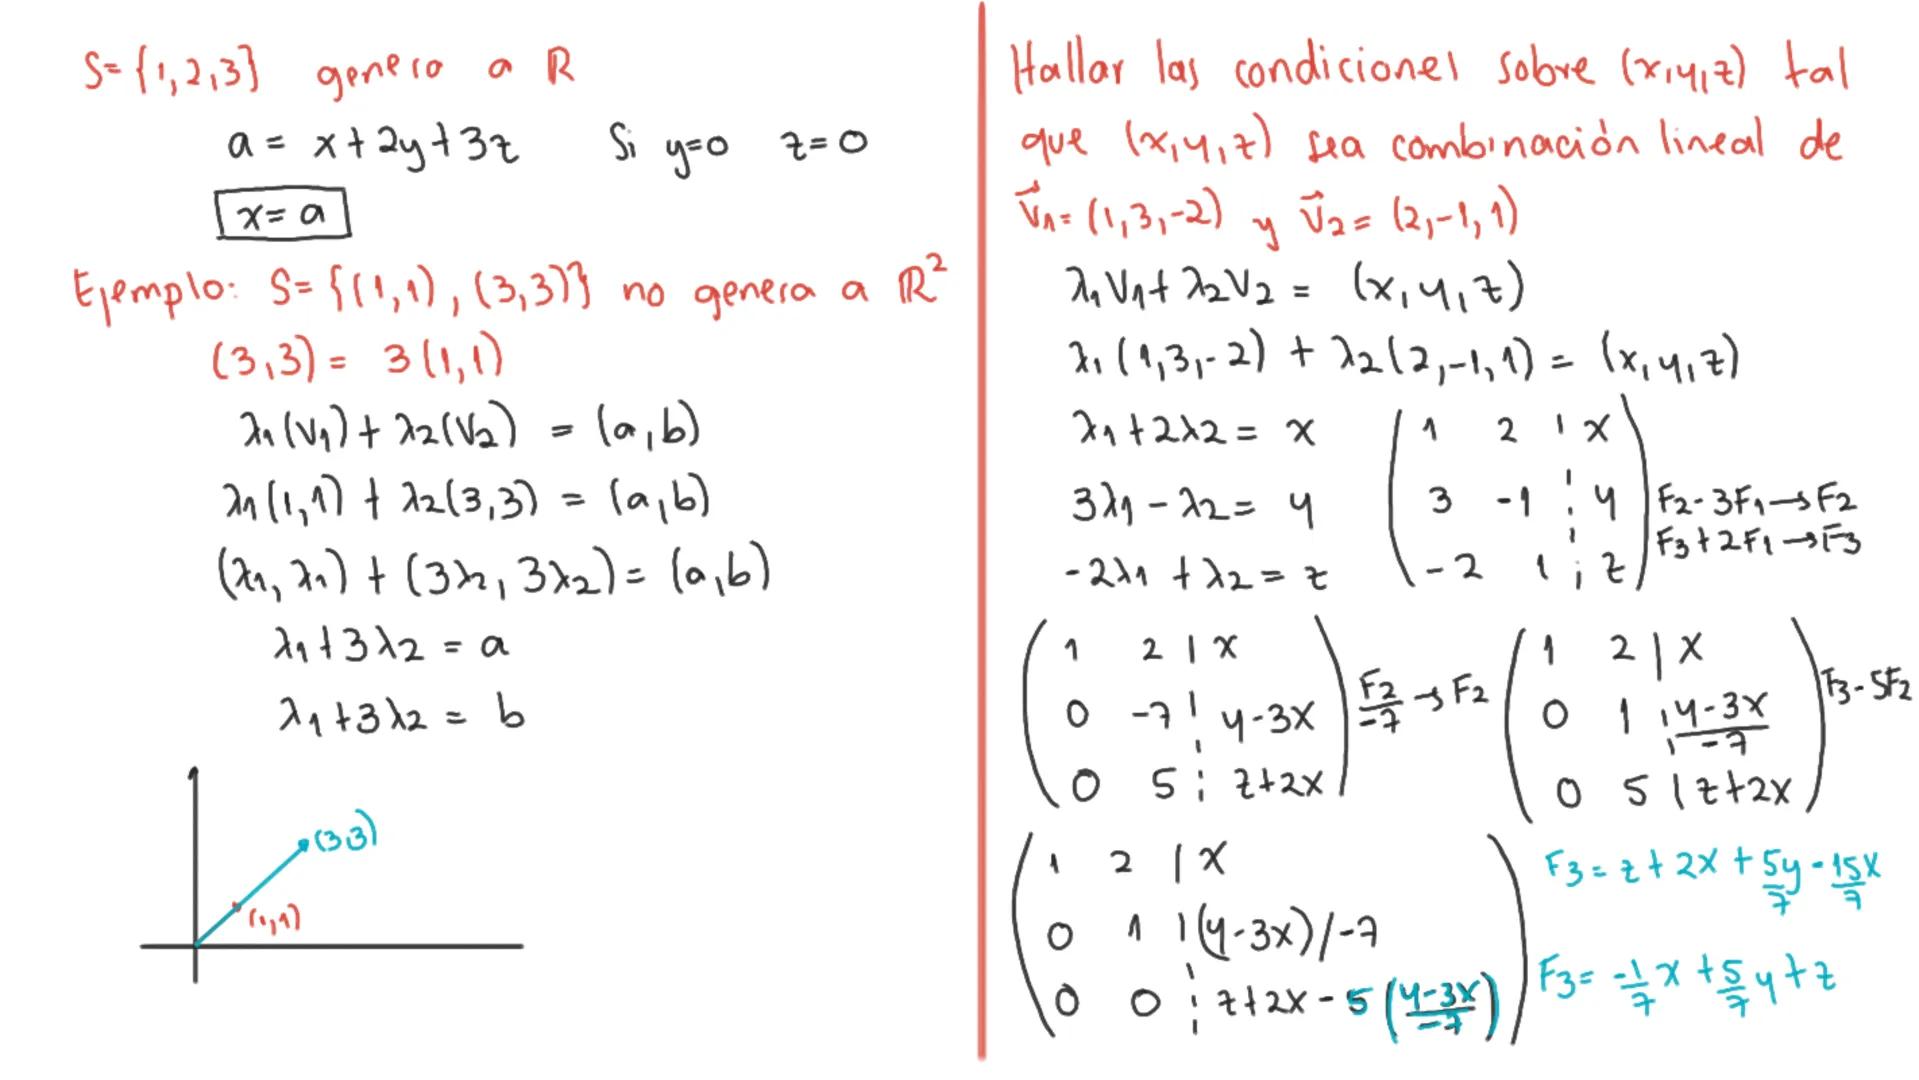 S={1,2,3} genera a ℝ
a = x+2y+3z Si y=0 z=0
x=a
Ejemplo: S={(1,1), (3,3)} no genera a ℝ²
(3,3) = 3(1,1)
λ1(V1)+λ2(V2) = (a,b)
λ1(1,1) + λ2(3,3) = (a,b)
(λ1, λ1) + (3λ2, 3λ2) = (a,b)
λ1+3λ2 = a
λ1+3λ2 = b
(3,3)
(1,1)
Hallar las condiciones sobre (x,y,z) tal
que (x,y,z) sea combinación lineal de
v⃗1=(1,3,-2) y v⃗2=(2,-1,1)
λ1V1+λ2V2 = (x,y,z)
λ1(1,3,-2) + λ2(2,-1,1) = (x,y,z)
λ1+2λ2 = x
3λ1-λ2 = y
-2λ1+λ2 = z
1 2 | x
3 -1 | y
-2 1 | z
F2-3F1→F2
F3+2F1→F3
1 2 | x
0 -7 | y-3x
0 5 | z+2x
F2/-7 → F2
1 2 | x
0 1 | (y-3x)/-7
0 5 | z+2x
F3-5F2
1 2 | x
0 1 | (y-3x)/-7
0 0 | z+2x-5((y-3x)/-7)
F3 = z+2x+5y/7-15x/7
F3 = -1/7x+5/7y+z